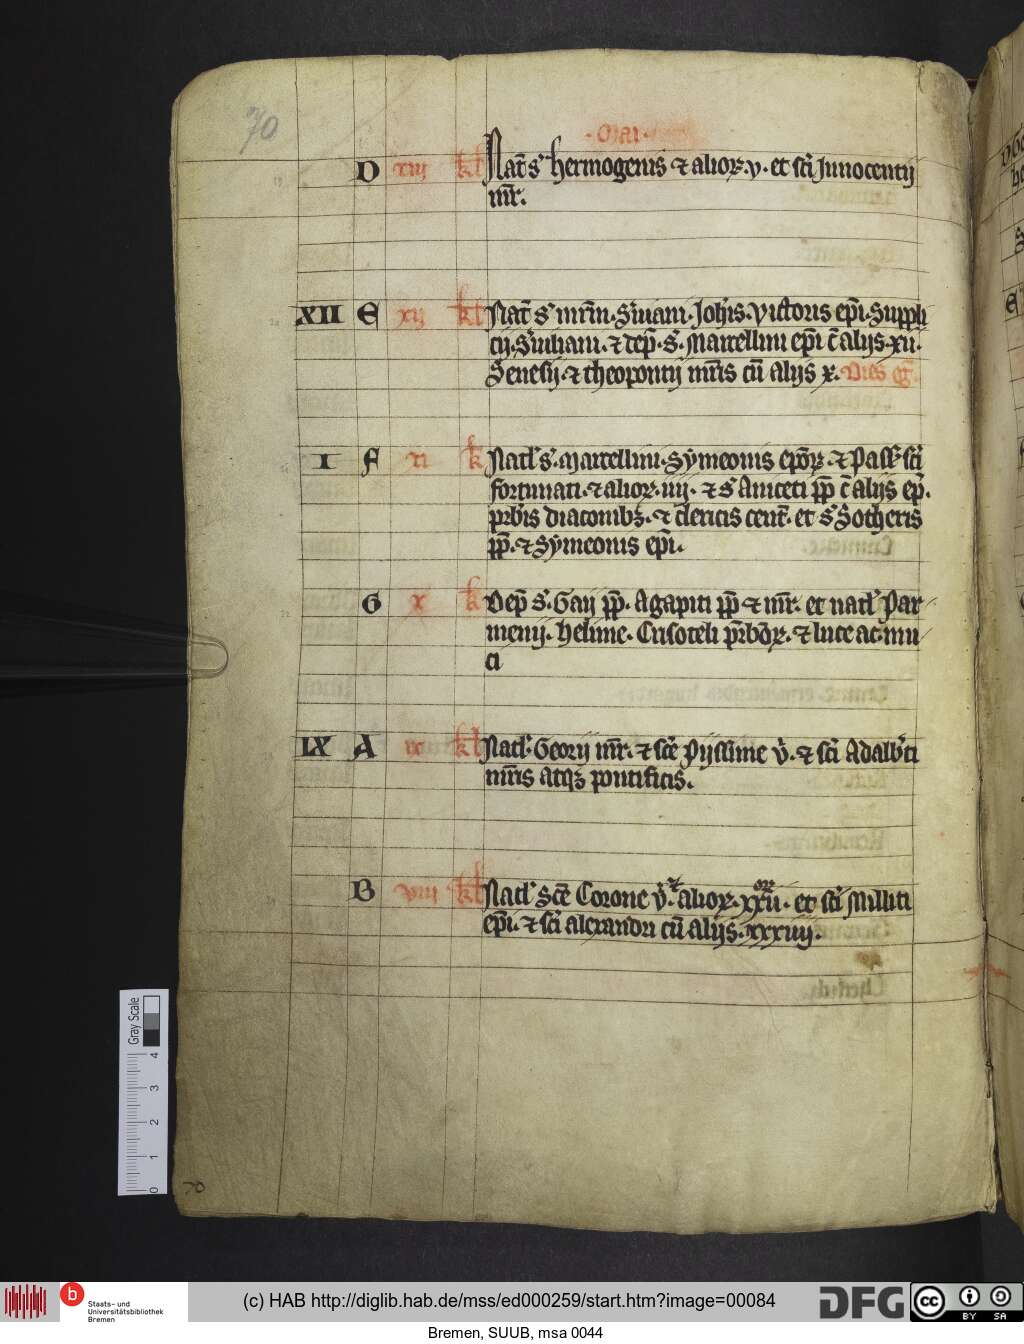 70
·Mai·
D xiij kl Nat̄ s̓ hermogenis ⁊ alioꝝ·v· et sc̄i Jnnocentij
mr̄.
XII E xij kl Nat̄ s̓ mr̄m·Siluani·Joh̓is·victoris ep̄i·Suppli
cij·S̓uiliani·⁊ dep̄·s̓·Marcellini ep̄i c̄ alijs·xii·
Senesij·⁊ theopontij mr̄is cū alijs x· Dies eg̓·
I F xi k Natl̓ s̓·Marcellini·Symeonis ep̄oꝝ·⁊ Pass̓ sc̄i
fortunati·⁊ alioꝝ·iiij· ⁊ s̓ Aniceti pp̄ c̄ alijs ep̄·
prb̓is diaconibꝫ·⁊ clericis cent̄· et s̓ Sotheris
pp̄·⁊ Symeonis ep̄i·
G x k Dep̄ s̓·Gaij pp̄· Agapiti pp̄ ⁊ mr̄· et natl̓ Par
menij· helime· Crisoteli pr̄bōꝝ·⁊ luce ac·mu
ci
IX A ix kl Natl̓·Georij mr̄·⁊ sc̄e Pijssime v̓·⁊ sc̄i Adalb̓ti
mr̄is atqꝫ pontificis·
B viij kl Natl̓ Sc̄e Corone v̓·⁊ alioꝝ·xxii· et sc̄i Milliti
ep̄i·⁊ sc̄i alexandri cū alijs·xxxiiij·
70
Gray Scale
0 1 2 3 4
b Staats- und
Universitätsbibliothek
Bremen
(c) HAB http://diglib.hab.de/mss/ed000259/start.htm?image=00084
DFG
cc BY SA
Bremen, SUUB, msa 0044